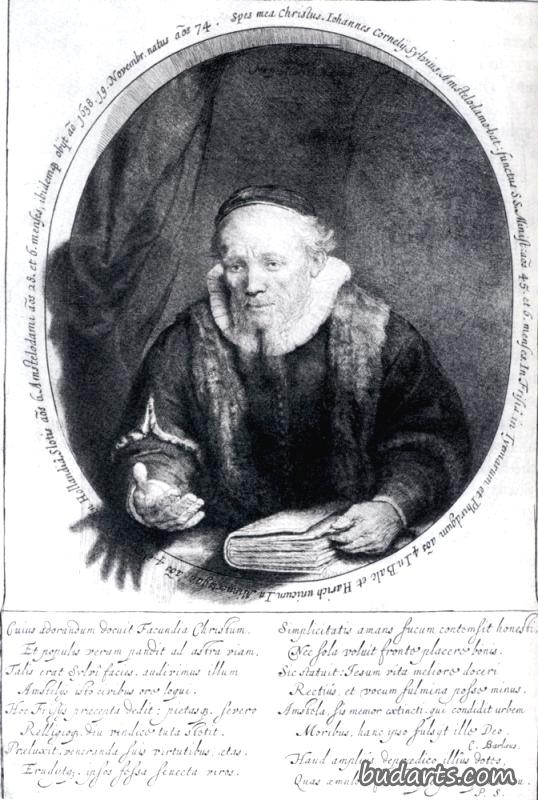 Spes mea Christus. Iohannes Cornelij Sylvius, Amstelodamo-bat: functus S.S. Minist: aōs 45. et 6. menses. In Frisia in Tyemarum et Phirdgum aōs 4. In Balc et Harich unicum. In Minnertsga, aōs 4. In Hollandia, Slotis aōs 6. Amstelodami aōs 28. et 6. menses, ibidemq; obijt aō 1638. 19. Novembr. natus aōs 74.
Cuius adorandum docuit Facundia Christum,
Et populis veram pandit ad astra viam.
Talis erat Sylvi facies. audivimus illum
Amstelijs isto civibus ore loqui.
Hoc Frisijs præcepta dedit: pietasq; severo
Relligioq; diu vindice tuta stetit.
Præluxit, veneranda suis virtutibus, ætas.
Erudijtq; ipsos fessa senecta viros.
Simplicitatis amans fucum contemsit honesti,
Nec sola voluit fronte placere bonis.
Sic statuit: Iesum vita meliore doceri
Rectiùs, et vocum fulmina posse minus.
Amstela, sis memor extincti. qui condidit urbem
Moribus, hanc ipso fulsijt ille Deo.
C. Barlæus.
Haud ampliùs deprædico illius dotes,
Quas æmulor,
P. S.
budarts.com